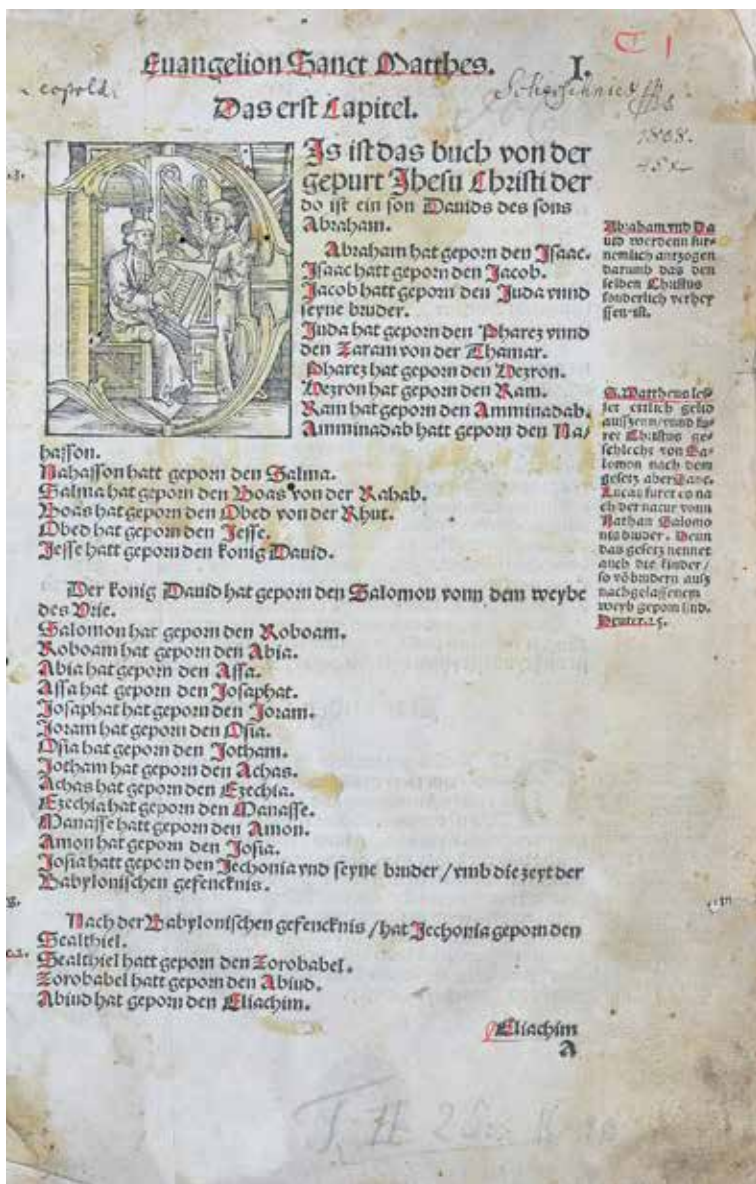 C 1
Euangelion Sanct Matthes. I.
eopold.
Scherschnick
1808.
Das erst Capitel.
Is ist das buch von der
gepurt Jhesu Christi der
do ist ein son Dauids des sons
Abraham.
Abraham hat geporn den Isaac.
Isaac hatt geporn den Jacob.
Jacob hatt geporn den Juda vnnd
seyne bruder.
Juda hat geporn den Pharez vnnd
den Zaram von der Thamar.
Pharez hat geporn den Hezron.
Hezron hat geporn den Ram.
Ram hat geporn den Amminadab.
Amminadab hatt geporn den Na/
hasson.
Nahasson hatt geporn den Salma.
Salma hat geporn den Boas von der Rahab.
Boas hat geporn den Obed von der Rhut.
Obed hat geporn den Jesse.
Jesse hatt geporn den konig Dauid.
Der konig Dauid hat geporn den Salomon vonn dem weybe
des Vrie.
Salomon hat geporn den Roboam.
Roboam hat geporn den Abia.
Abia hat geporn den Assa.
Assa hat geporn den Josaphat.
Josaphat hat geporn den Joram.
Joram hat geporn den Osia.
Osia hat geporn den Jotham.
Jotham hat geporn den Achas.
Achas hat geporn den Ezechia.
Ezechia hat geporn den Manasse.
Manasse hatt geporn den Amon.
Amon hat geporn den Josia.
Josia hatt geporn den Jechonia vnd seyne bruder / vmb die zeyt der
Babylonischen gefencknis.
Nach der Babylonischen gefencknis / hat Jechonia geporn den
Sealthiel.
Sealthiel hatt geporn den Zorobabel.
Zorobabel hatt geporn den Abiud.
Abiud hat geporn den Eliachim.
Abraham vnd Da
uid werdenn fur-
nemlich antzogen
darumb das den
selben Christus
sonderlich verhey
ssen ist.
S. Mattheus les
set ettlich gelid
aussenn/vnnd fu-
ret Christus ge-
schlecht von Sa-
lomon nach dem
gesetz aber Sanc.
Lucas furet es na
ch der natur vonn
Nathan Salomo
nis bruder. Denn
das gesetz nennet
auch die kinder/
so võ brudern ausz
nachgelassenem
weyb geporn sind.
Deuter. 25.
Eliachim
A